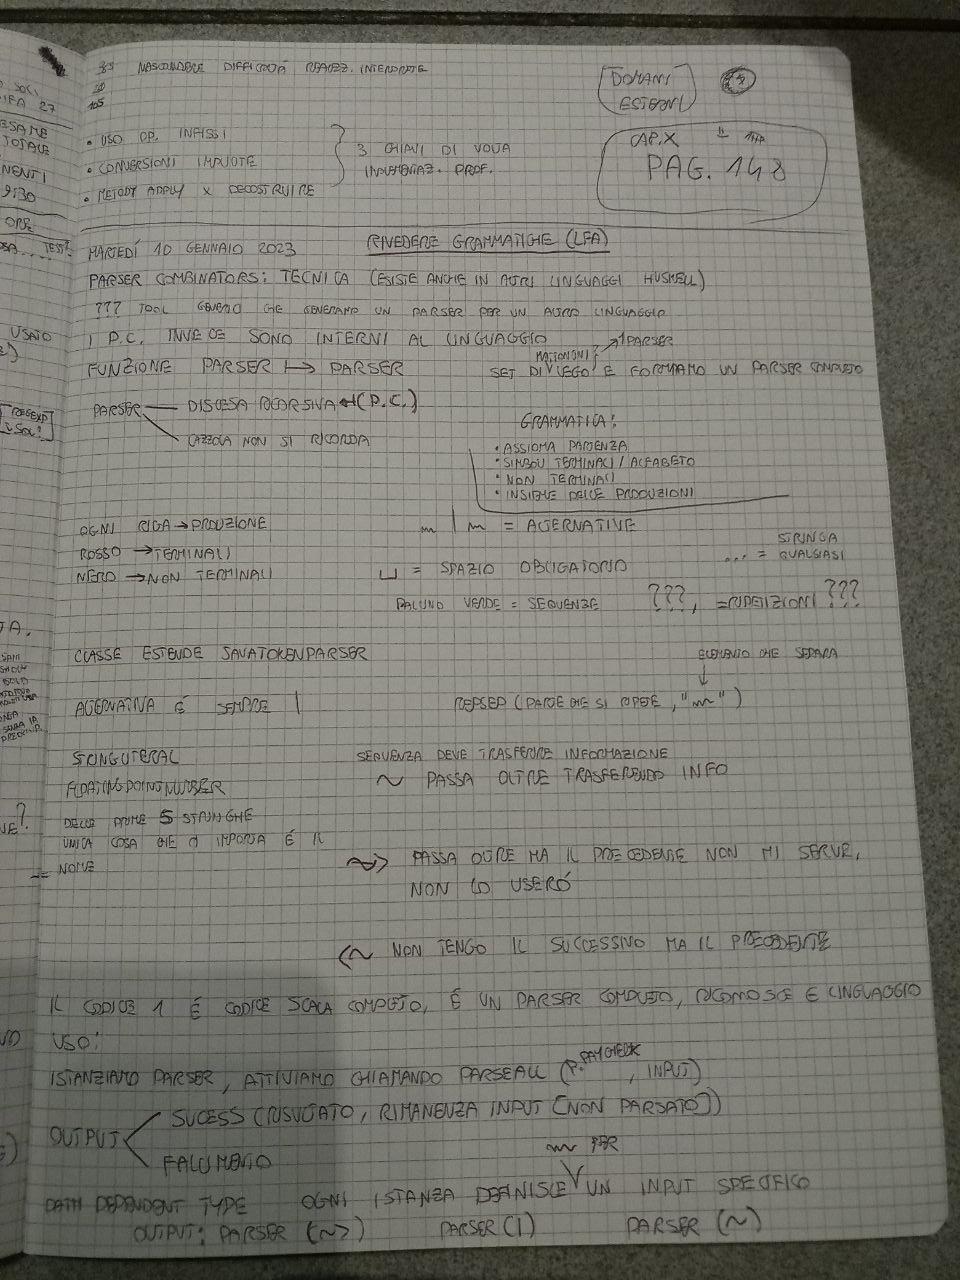 NASCONDERE DIFFICOLTÀ REALIZZ. INTERPRETE
DOMANI
ESTERNI
105
• USO OP. INFISSI
• CONVERSIONI IMPLICITE
• METODI APPLY X DECOSTRUIRE
3 CHIAVI DI VOLTA
PROF.
CAP. X
PAG. 148
MARTEDÍ 10 GENNAIO 2023
RIVEDERE GRAMMATICHE (LFA)
PARSER COMBINATORS: TECNICA (ESISTE ANCHE IN ALTRI LINGUAGGI HUSKELL)
??? TOOL CHE GENERANO UN PARSER PER UN ALTRO LINGUAGGIO
I P.C. INVECE SONO INTERNI AL LINGUAGGIO
FUNZIONE PARSER ↦ PARSER
MATTONCINI → 1 PARSER
SET DI E FORMIAMO UN PARSER COMPLETO
PARSER — DISCESA RICORSIVA (P.C.)
CAZZOLA NON SI RICORDA
GRAMMATICA:
• ASSIOMA PARTENZA
• SIMBOLI TERMINALI / ALFABETO
• NON TERMINALI
• INSIEME DELLE PRODUZIONI
OGNI RIGA → PRODUZIONE
ROSSO → TERMINALI
NERO → NON TERMINALI
| = ALTERNATIVE
⊔ = SPAZIO OBLIGATORIO
... = STRINGA QUALSIASI
PALLINO VERDE = SEQUENZE ???, = RIPETIZIONI ???
CLASSE ESTENDE JAVATOKENPARSER
ELEMENTO CHE SEPARA
ALTERNATIVA É SEMPRE |
REPSEP (PARTE CHE SI RIPETE, " ")
STRINGLITERAL
FLOATINGPOINTNUMBER
SEQUENZA DEVE TRASFERIRE INFORMAZIONE
~ PASSA OLTRE TRASFERENDO INFO
DELLE PRIME 5 STRINGHE
UNICA COSA CHE CI IMPORTA É IL
NOME
~> PASSA OLTRE MA IL PRECEDENTE NON MI SERVE,
NON LO USERÓ
<~ NON TENGO IL SUCCESSIVO MA IL PRECEDENTE
IL CODICE 1 É CODICE SCALA COMPLETO, É UN PARSER COMPLETO, RICONOSCE IL LINGUAGGIO
USO:
ISTANZIAMO PARSER, ATTIVIAMO CHIAMANDO PARSEALL (P.PAYCHECK, INPUT)
OUTPUT
SUCESS (RISULTATO, RIMANENZA INPUT (NON PARSATO))
FALLIMENTO
PATH DEPENDENT TYPE OGNI ISTANZA DEFINISCE UN INPUT SPECIFICO
OUTPUT: PARSER (~>) PARSER (|) PARSER (~)